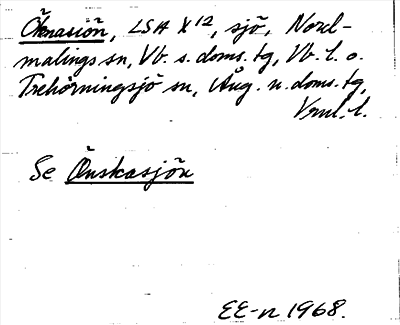 Öknasiön, LSA X12, sjö, Nord-
malings sn, Vb. s. doms. tg, Vb. l. o.
Trehörningsjö sn, Ång. n. doms. tg,
Vrnl. l.
Se Önskasjön
EE-n 1968.